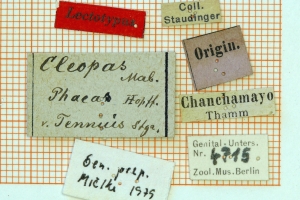 Lectotypus
Coll.
Staudinger
Origin.
Cleopas
Mab.
Phaeas Hopff.
v. Tennius Stgr.
Chanchamayo
Thamm
Gen. prep.
Mielke 1975
Genital-Unters.
Nr. 4715
Zool. Mus. Berlin